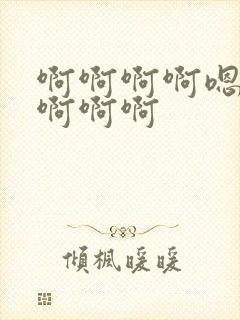 啊啊啊啊嗯
啊啊啊
傾楓暖暖